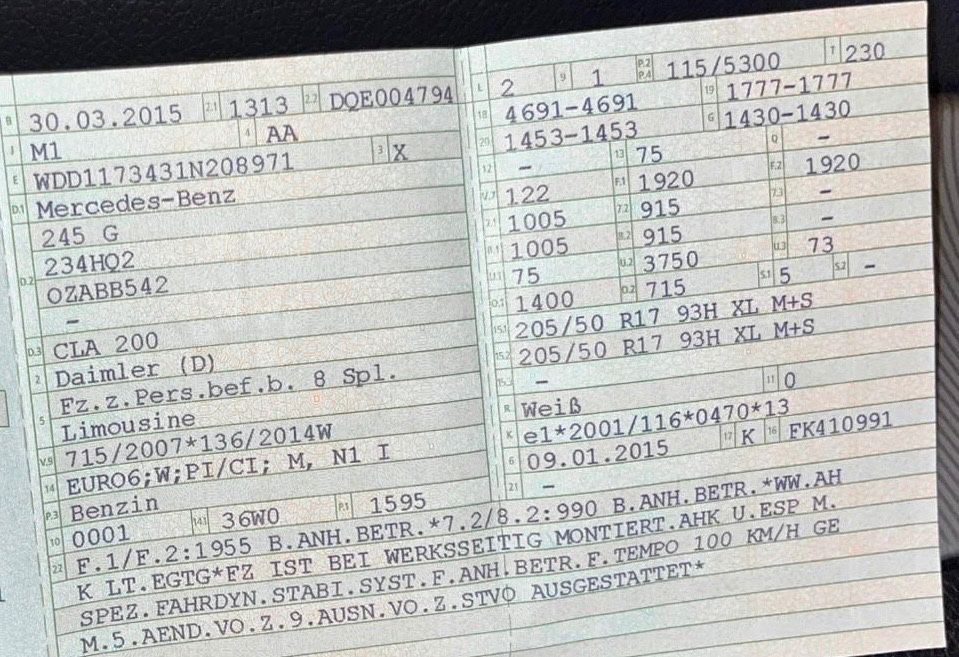 B 30.03.2015 2.1 1313 2.2 DQE004794
J M1 4 AA
E WDD1173431N208971 3 X
D.1 Mercedes-Benz
245 G
D.2 234HQ2
OZABB542
-
D.3 CLA 200
2 Daimler (D)
Fz.z.Pers.bef.b. 8 Spl.
5 Limousine
V.9 715/2007*136/2014W
14 EURO6;W;PI/CI; M, N1 I
P.3 Benzin
10 0001 14.1 36W0 P.1 1595
L 2 9 1 P.2 P.4 115/5300 T 230
18 4691-4691 19 1777-1777
20 1453-1453 G 1430-1430
12 - 13 75 Q -
V.7 122 F.1 1920 F.2 1920
7.1 1005 7.2 915 7.3 -
8.1 1005 8.2 915 8.3 -
U.1 75 U.2 3750 U.3 73
O.1 1400 O.2 715 S.1 5 S.2 -
15.1 205/50 R17 93H XL M+S
15.2 205/50 R17 93H XL M+S
15.3 -
R Weiß 11 0
K e1*2001/116*0470*13
6 09.01.2015 17 K 16 FK410991
21 -
22 F.1/F.2:1955 B.ANH.BETR.*7.2/8.2:990 B.ANH.BETR.*WW.AH
K LT.EGTG*FZ IST BEI WERKSSEITIG MONTIERT.AHK U.ESP M.
SPEZ.FAHRDYN.STABI.SYST.F.ANH.BETR.F.TEMPO 100 KM/H GE
M.5.AEND.VO.Z.9.AUSN.VO.Z.STVO AUSGESTATTET*